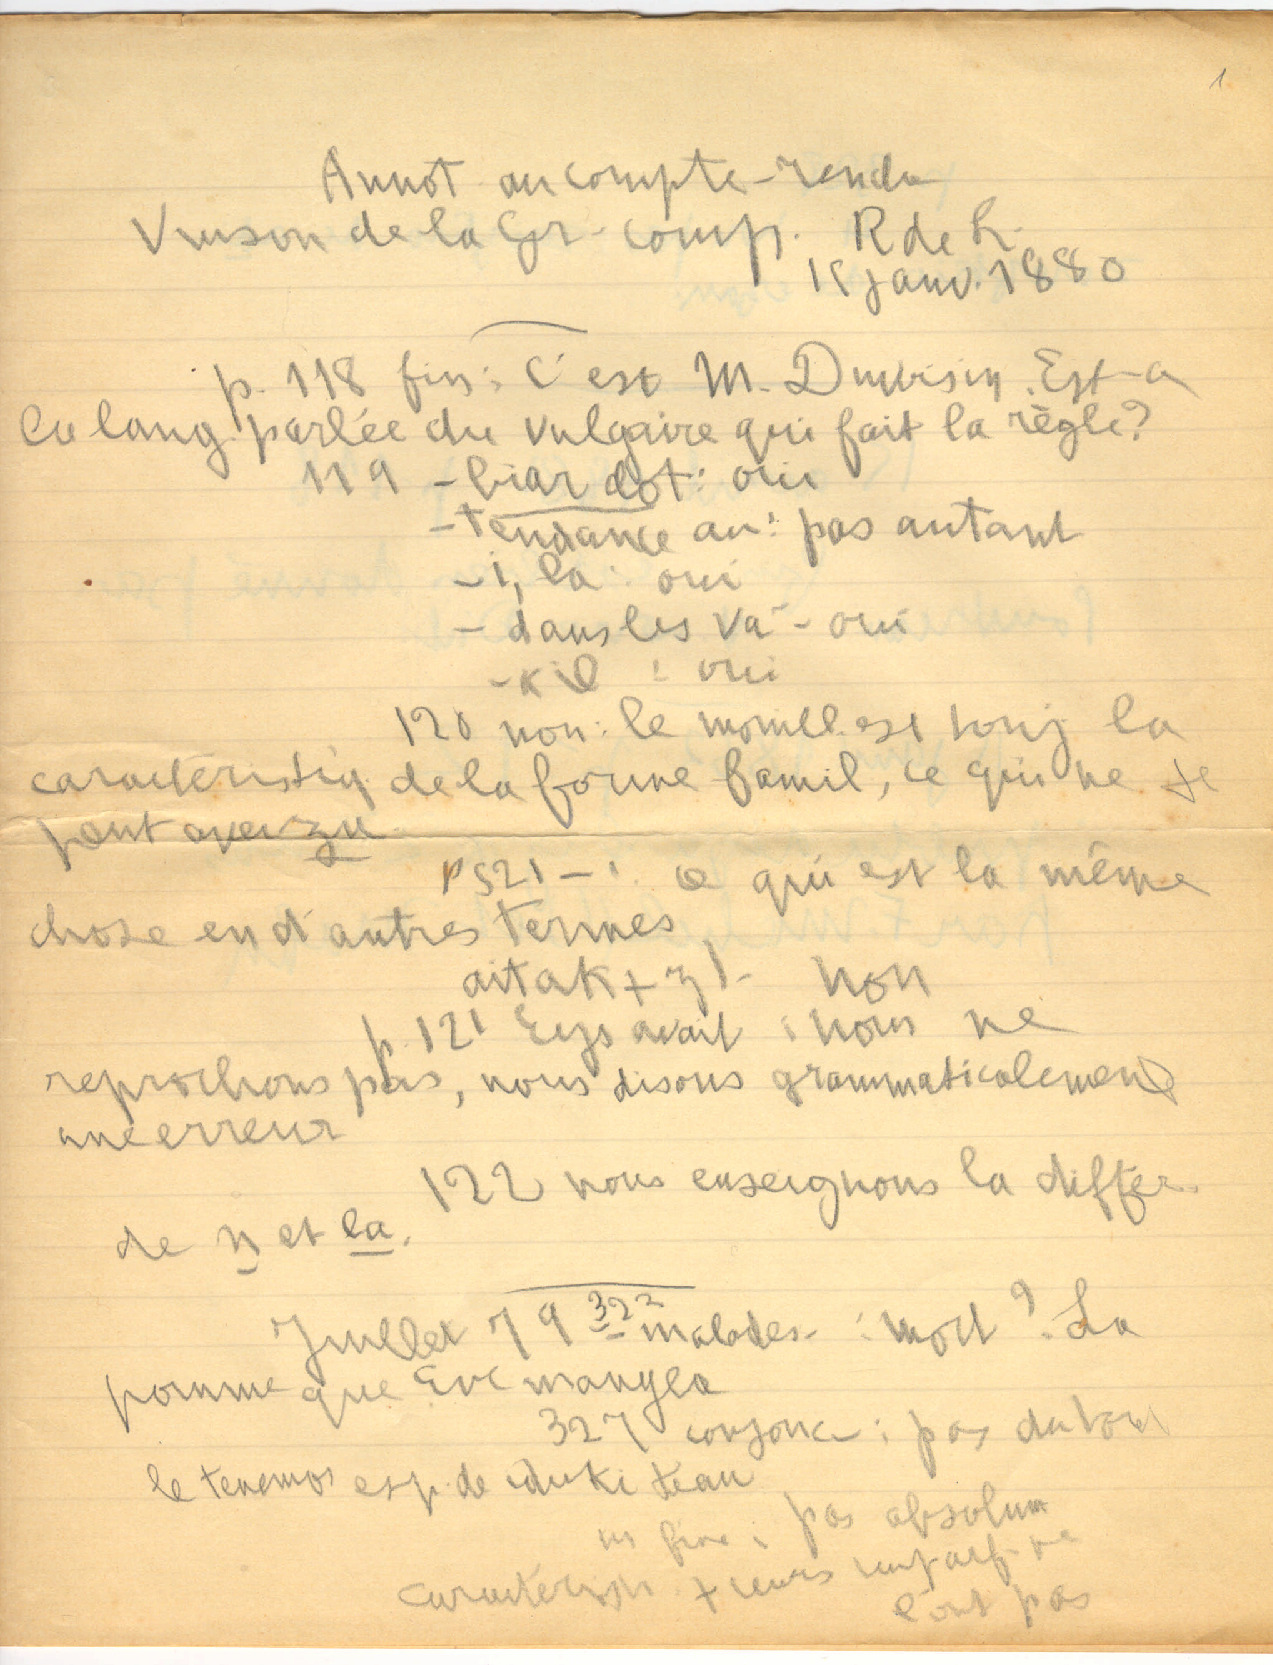 1
Annot au compte-rendu
Vinson de la Gr. comp. R de L.
15 janv. 1880
p. 118 fin: C'est M. Duvoisin. Est-ce
la lang. parlée du vulgaire qui fait la règle?
119 - biar dot: oui
- tendance au: pas autant
- i, la: oui
- dans les va - oui
- kil : oui
120 non: le mouill. est touj la
caractéristiq. de la forme famil, ce qui ne se
peut avec zu
PS 21 - : ce qui est la même
chose en d'autres termes
aitak + z). non
p. 121 Eys avait : nous ne
reprochons pas, nous disons grammaticalement
une erreur
122 nous enseignons la différ.
de n et la.
Juillet 79 322 malades - : mort? La
pomme que Eve mangea
327 conjonc : pas du tout
le tenemos esp. de iduki
in fine : pas absolum
caractérisq. + ieurs ne
l'ont pas